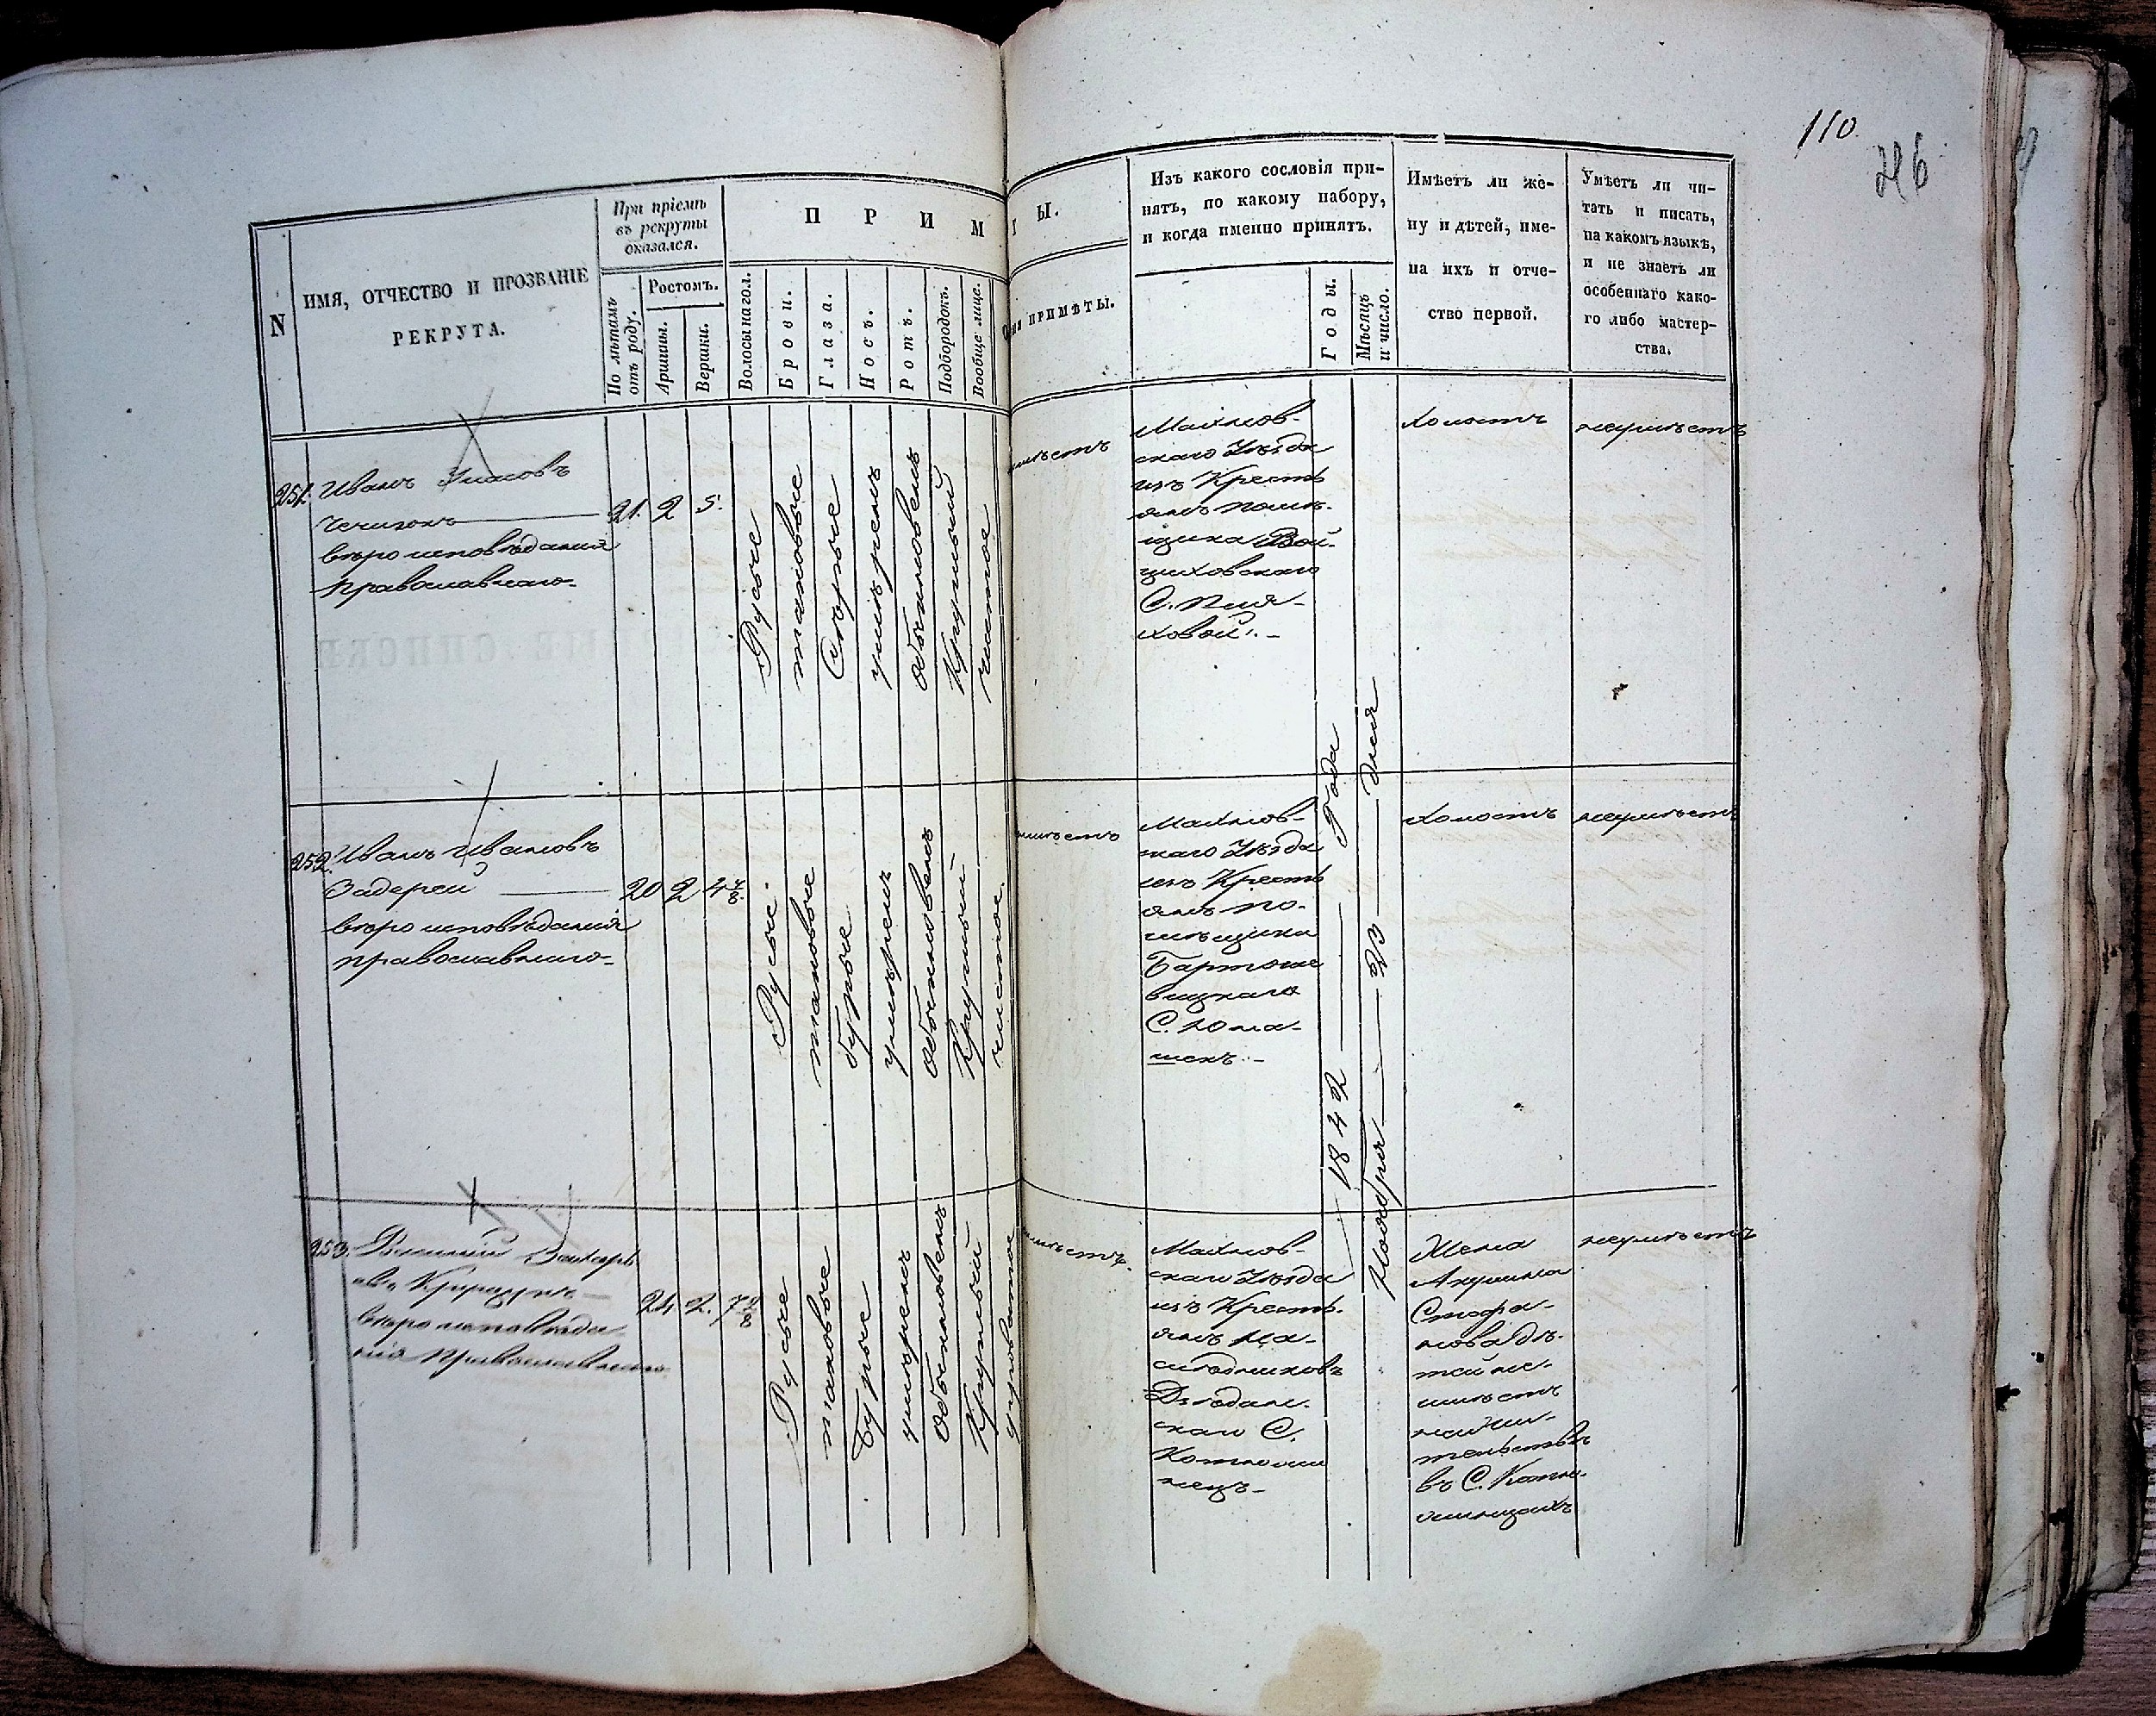 110
246
N
ИМЯ, ОТЧЕСТВО И ПРОЗВАНІЕ
РЕКРУТА.
При пріемѣ
въ рекруты
оказался.
По лѣтамъ
отъ роду.
Ростомъ.
Аршины.
Вершки.
П Р И М
Волосы на гол.
Брови.
Глаза.
Носъ.
Ротъ.
Подбородокъ.
Вообще лице.
Т Ы.
ПРИМѢТЫ.
Изъ какого сословія при-
нятъ, по какому набору,
и когда именно принятъ.
Годы.
Мѣсяцъ
и число.
Имѣетъ ли же-
ну и дѣтей, име-
на ихъ и отче-
ство первой.
Умѣетъ ли чи-
тать и писать,
на какомъ языкѣ,
и не знаетъ ли
особеннаго како-
го либо мастер-
ства.
251.
Иванъ
вѣроисповѣданія
православнаго
21. 2 5.
Русые
таковые
Сѣрые
умѣренъ
обыкновенъ
Круглый
чистое
Махнов-
скаго Уѣзда
изъ Кресть
янъ помѣ-
щика Вой-
циховскаго
С.
холостъ
неумѣетъ
252.
Иванъ Ивановъ
Задерей
вѣроисповѣданія
православнаго
20 2 4 7/8
Русые
таковые
бурые
умѣренъ
обыкновенъ
Круглый
чистое
Махнов-
скаго Уѣзда
изъ Кресть
янъ по-
мѣщика
Бартоше
вицкаго
С. Юма-
шекъ
холостъ
неумѣетъ
1842 Года
Ноября 23 дня
253.
Василій Захарь
евъ
вѣроисповѣда
нія православнаго
24 2. 7 2/8
Русые
таковые
Бурые
умѣренъ
обыкновенъ
Круглый
Махнов-
скаго Уѣзда
изъ Кресть-
янъ на-
слѣдниковъ
С.
Жена
Акулина
Стефа-
нова дѣ-
тей не-
имѣетъ
жи-
тельствъ
въ С.
неумѣетъ